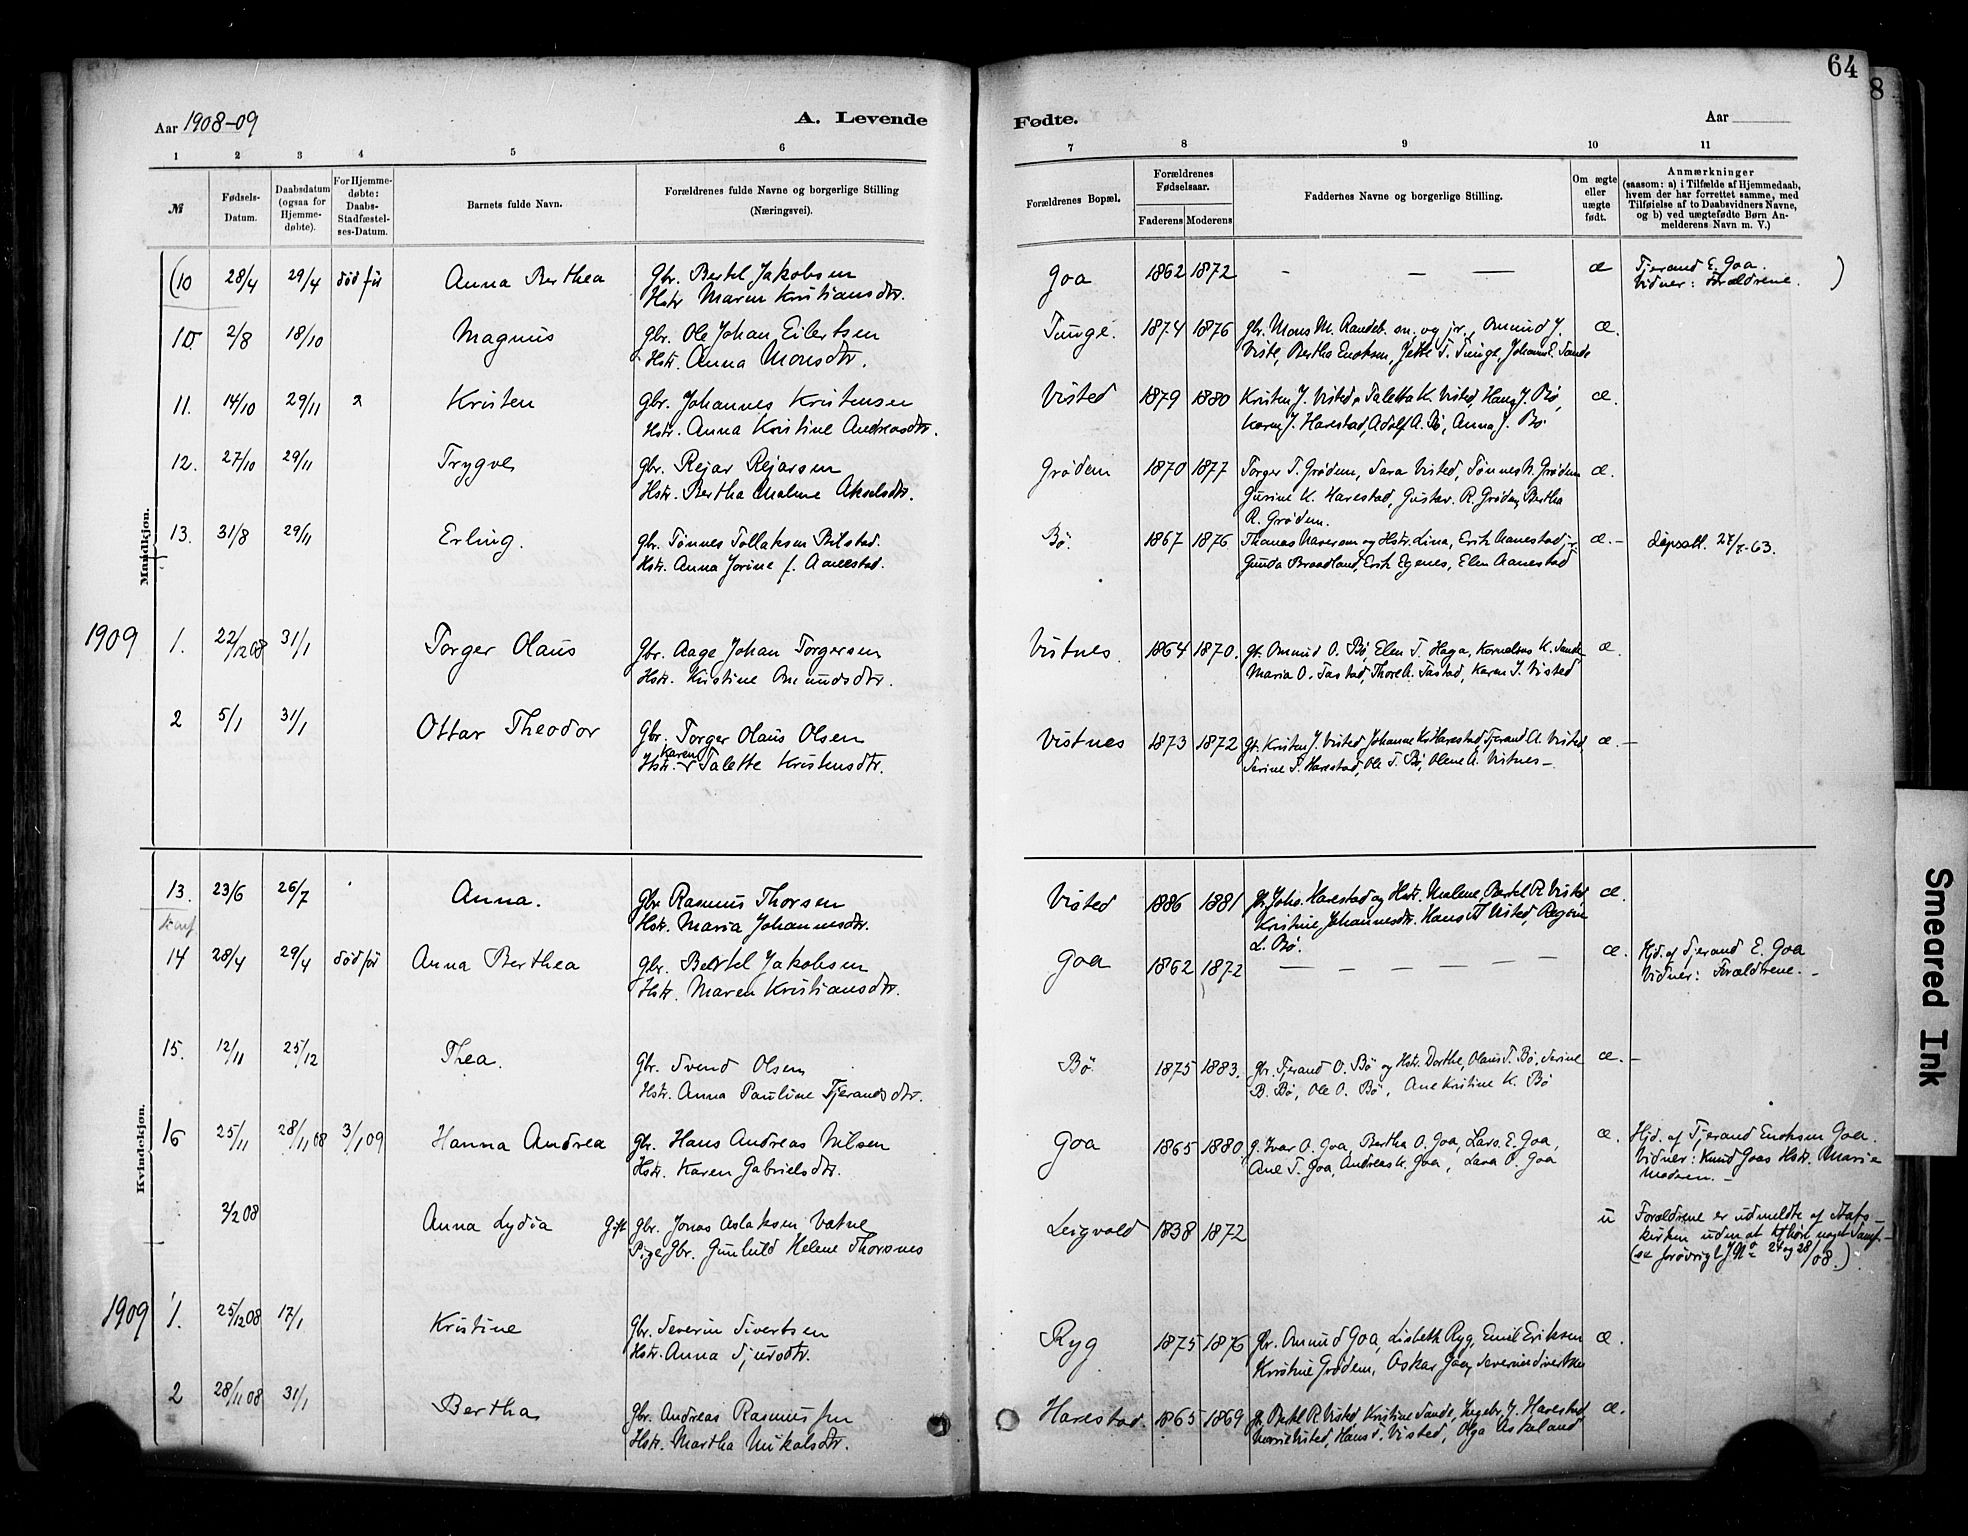 64
8
Aar 1908-09
A. Levende
Fødte.
Aar
1 2 3 4 5 6 7 8 9 10 11
№
Fødsels-
Datum.
Daabsdatum
(ogsaa for
Hjemme-
døbte).
For Hjemme-
døbte:
Daabs-
Stadfæstel-
ses-Datum.
Barnets fulde Navn.
Forældrenes fulde Navne og borgerlige Stilling
(Næringsvei).
Forældrenes Bopæl.
Forældrenes
Fødselsaar.
Faderens Moderens
Faddernes Navne og borgerlige Stilling.
Om ægte
eller
uægte
født.
Anmærkninger
(saasom: a) i Tilfælde af Hjemmedaab,
hvem der har forrettet samme, med
Tilføielse af to Daabsvidners Navne,
og b) ved uægtefødte Børn An-
melderens Navn m. V.)
Mandkjøn.
(10 28/4 29/4 død før Anna Berthea Gbr. Bertel Jakobsen Goa 1862 1872 — — — æ Tjerand E. Goa.
Hstr Maren Kristiansdtr. Vidner: Forældrene. )
10 2/8 18/10 Magnus Gbr. Ole Johan Eilertsen Tunge. 1874 1876 Gbr. Mons M. Randeb. sn. og jr., Omund J. æ.
Hstr. Anna Monsdtr. Viste, Bertha Enoksen, Jette T. Tunge, Johan E. Sande
11. 14/10 29/11 Kristen Gbr. Johannes Kristensen Visted 1879 1880 Kristen J. Visted, Taletta K. Visted, Hans J. Bø, æ.
Hstr. Anna Kristine Andreasdtr. Karen J. Harestad, Adolf A. Bø, Anna J. Bø.
12. 27/10 29/11 Trygve Gbr. Rejar Rejarsen Grødem 1870 1877 Torger T. Grødem, Sara Visted, Tønnes N. Grødem æ.
Hstr. Bertha Malene Akselsdtr. Gurine K. Harestad, Gustav. R. Grødem, Bertha
R. Grødem.
13. 31/8 29/11 Erling. Gbr. Tønnes Tollaksen Bilstad. Bø. 1867 1876 Thomas Naversen og Hstr. Lina, Erik Aanestad jr. æ.-
Hstr. Anna Jorine f. Aanestad. Gunda Braadland, Erik Egenes, Elen Aanestad
1909 1. 22/12 08 31/1 Torger Olaus Gbr. Aage Johan Torgersen Vistnes. 1864 1870. Gb. Omund O. Bø, Elen T. Haga, Kornelius K. Sande æ.
Hstr. Kristine Omundsdtr. Maria O. Tastad, Thore A. Tastad, Karen T. Visted
2 5/1 31/1 Ottar Theodor Gbr. Torger Olaus Olsen Vistnes 1873 1872 Gb. Kristen J. Visted, Johanne K. Harestad, Tjerand A. Visted æ.-
Karen
Hstr. Talette Kristensdtr. Serine T. Harestad, Ole T. Bø, Olene A. Vistnes-
Kvindekjøn.
13. 23/6 26/7 Anna. Gbr. Rasmus Thorsen Visted 1886 1881 Gb. Johs. Harestad og Hstr. Malene, Bertel R. Visted, æ.
Hstr. Maria Johannesdtr. Kristine Johannesdtr. Hans T. Visted, Regine
L. Bø.
14 28/4 29/4 død før Anna Berthea Gbr. Bertel Jakobsen Goa 1862 1872 — — — — — — æ. Hjd. af Tjerand E. Goa
Hstr. Maren Kristiansdtr. Vidner: Forældrene.-
15. 12/11 25/12 Thea. Gbr. Svend Olsen Bø 1875 1883. Gbr. Tjerand O. Bø og Hstr. Dorthe, Olaus T. Bø, Serine æ.-
Hstr. Anna Pauline Tjerandsdtr. B. Bø, Ole O. Bø, Ane Kristine K. Bø
16 25/11 28/11 08 3/1 09 Hanna Andrea Gbr. Hans Andreas Nilsen Goa 1865 1880. G. Ivar O. Goa, Bertha O. Goa, Lars. E. Goa, æ. Hjd. af Tjerand Enoksen Goa.
Hstr. Karen Gabrielsdtr. Ane T. Goa, Andreas K. Goa, Lava O. Goa Vidner: Knud Goas Hstr. Marie
Madsen.-
3/2 08 Anna Lydia Gift Gbr. Jonas Aslaksen Vatne Leigvold 1838 1872 u Forældrene er udmeldte af Stats-
Pige Gbr. Gunhild Helene Thorsnes kirken uden at tilhøre noget Samf.-
(se forøvrigt J. No 24 og 28/08.).
1909 1. 25/12 08 17/1 Kristine Gbr. Severin Sivertsen Ryg 1875 1876 Gbr. Omund Goa, Lisbeth Ryg, Emil Eriksen æ.
Hstr. Anna Sjursdtr. Kristine Grødem, Oskar Goa, Severine Sivertsen
2 28/11 08 31/1 Bertha Gbr. Andreas Rasmussen Harestad. 1865 1869 Gb. Bertel R. Visted, Kristine Sande, Ingebr. Y. Harestad, æ.
Hstr. Martha Nikolsdtr. Marie Visted, Hans J. Visted, Olga Askeland
Smeared Ink